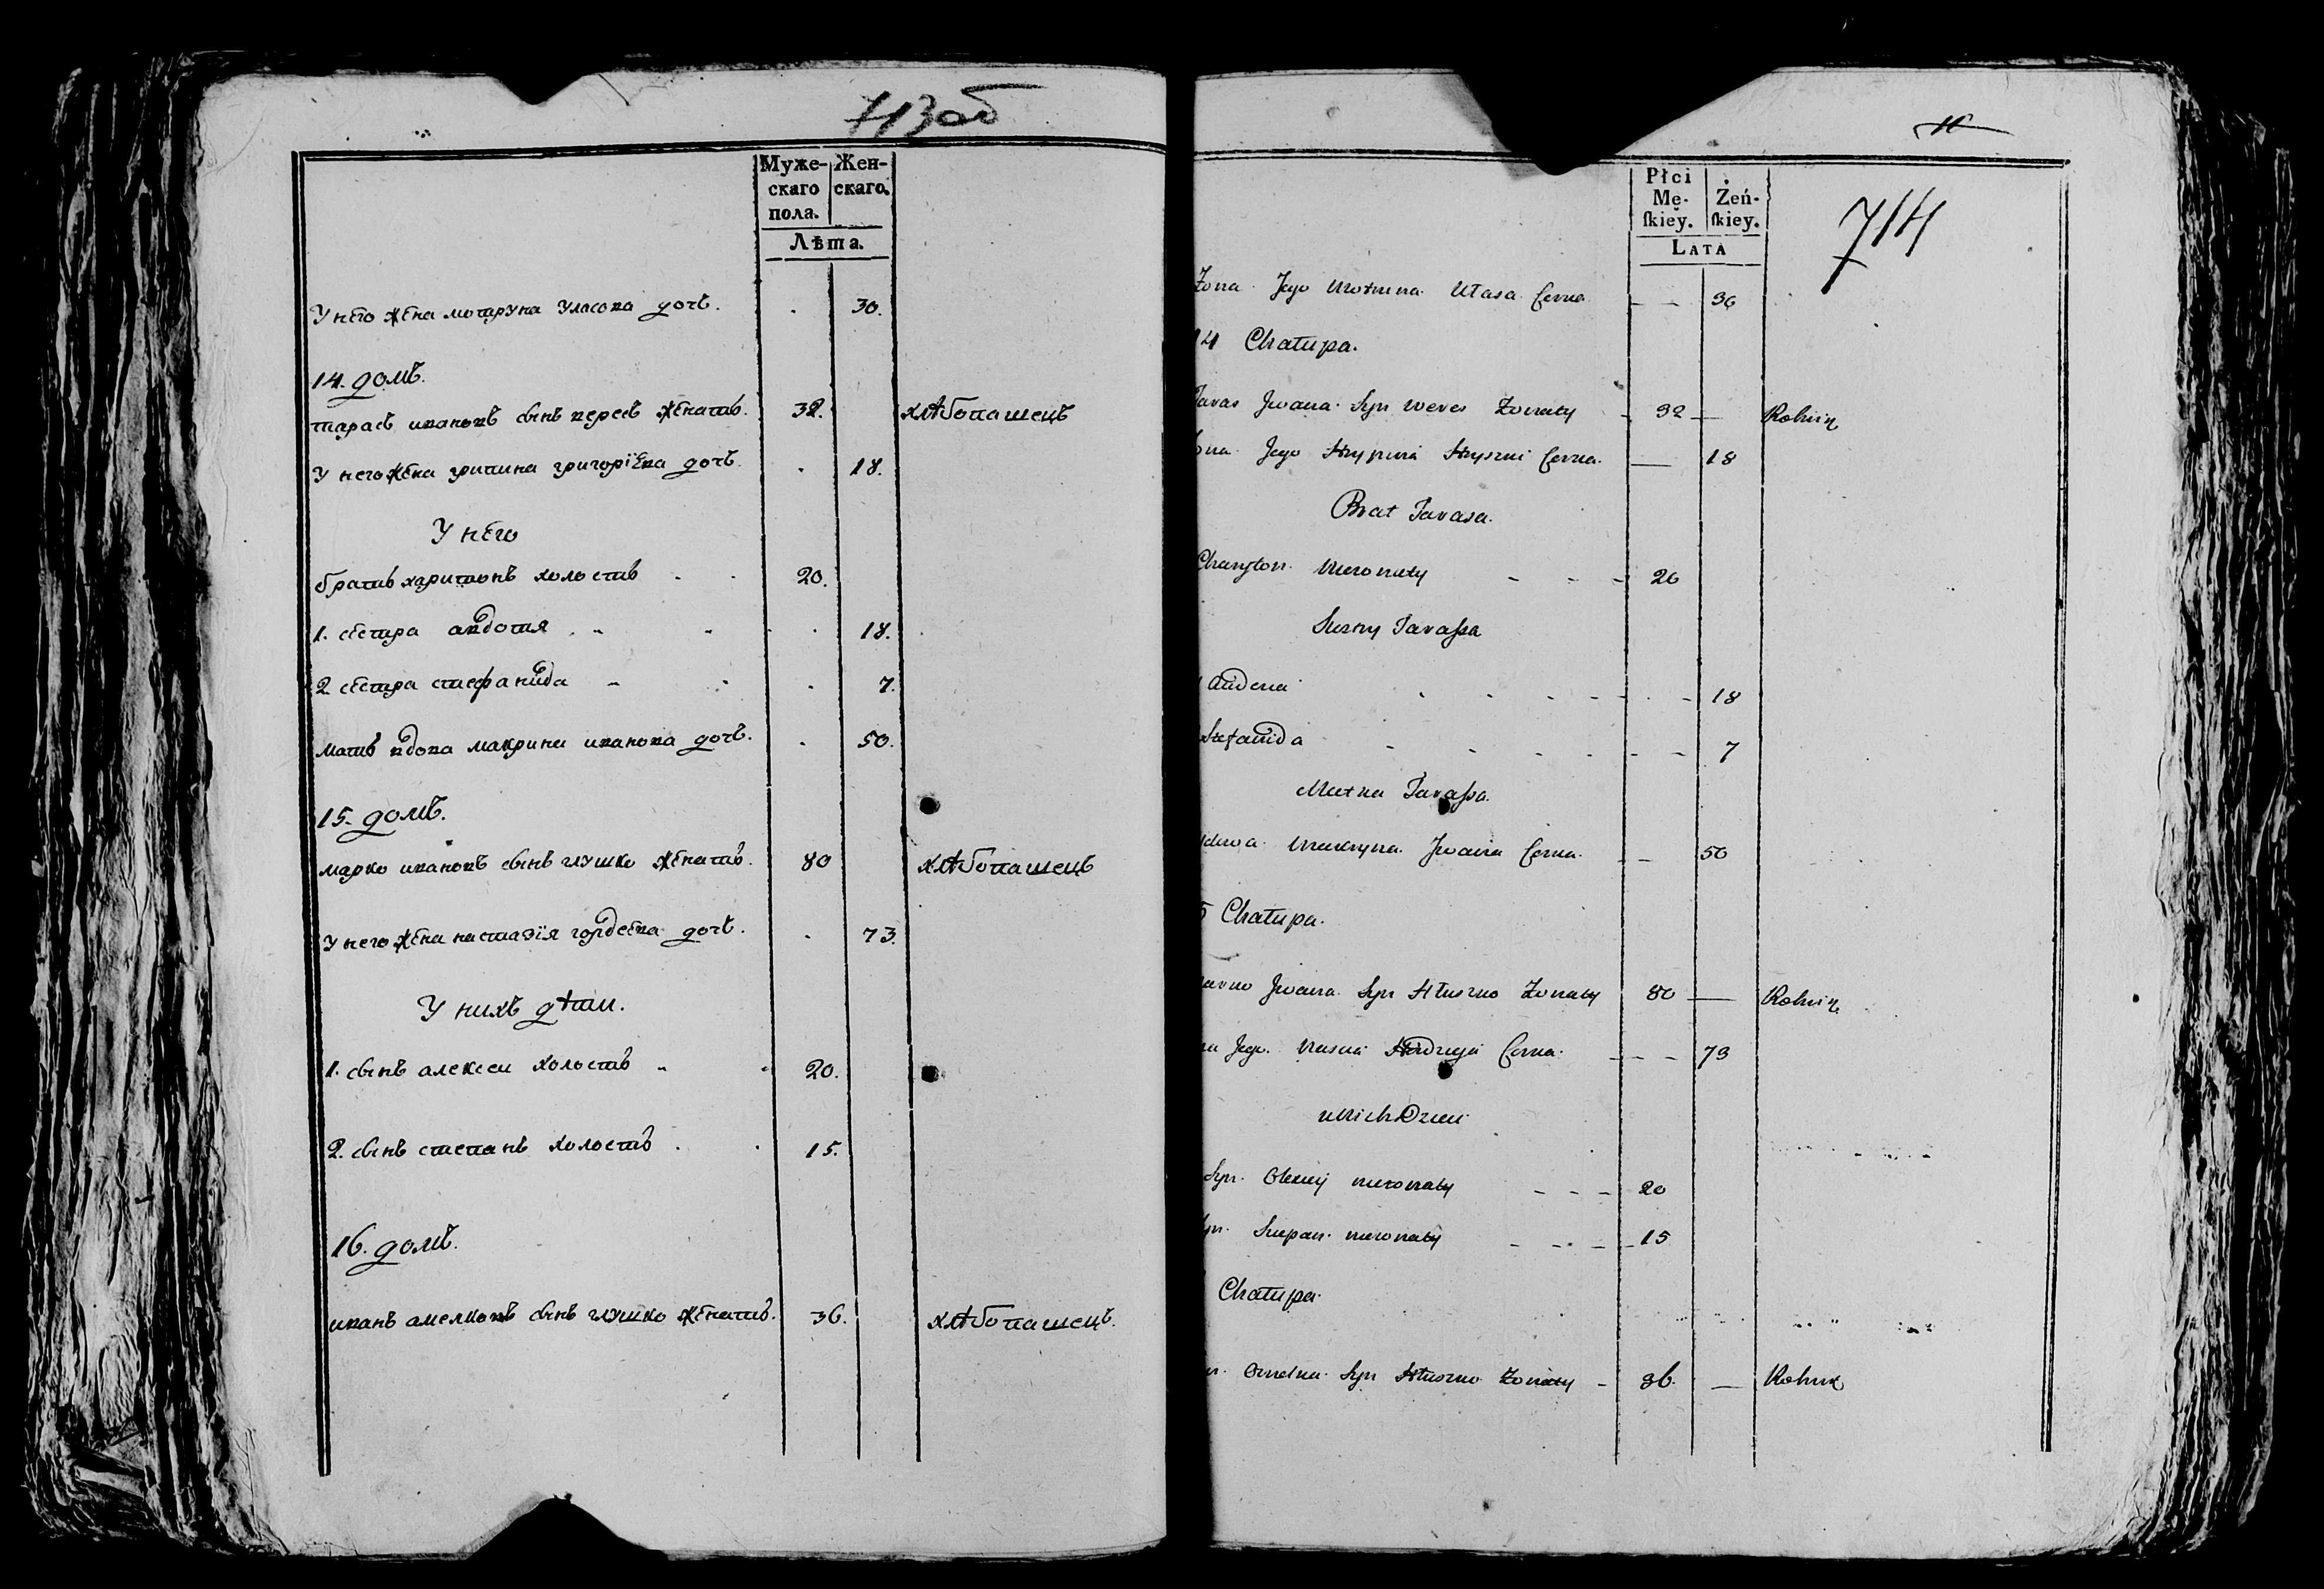 713 об
Муже- Жен-
скаго скаго.
пола.
Лѣта.
У него жена мотруна Уласова дочь. 30.
14. домъ.
тарасъ ивановъ сынъ вересъ женатъ. 32. хлѣбопашецъ
У него жена грипина григоріева дочь 18.
У него
братъ харитонъ холостъ 20.
1. сестра авдотия 18.
2 сестра стефанида 7.
мать вдова макрина иванова дочь. 50.
15. домъ.
марко ивановъ сынъ глушко женатъ. 80 хлѣбопашецъ
У него жена настазія гордеева дочь. 73.
У нихъ дѣти.
1. сынъ алексеи холостъ 20.
2. сынъ степанъ холостъ 15.
16. домъ.
иванъ амелковъ сынъ глушко женатъ. 36. хлѣбопашецъ.
11
714
Płci Żeń-
Mę- ſkiey.
ſkiey.
LATA
Zona Jego Motruna Ułasa Corka 36
14 Chałupa.
Taras Jwana Syn Weres Zonaty 32 Rolnik
Jego Hrypina Hryszki Corka 18
Brat Tarasa.
Charyton Niezonaty 20
Siostry Tarassa
Audocia 18
Stefanida 7
Matka Tarassa.
Makryna Jwana Corka 50
5 Chałupa.
Jwana Syn Hłuszko Zonaty 80 Rolnik
Jego Nastia Hordzieja Corka 73
u Nich Dzieci
Syn Olexiey niezonaty 20
Stepan niezonaty 15
Chałupa.
Omelka Syn Hłuszko Zonaty 36. Rolnik